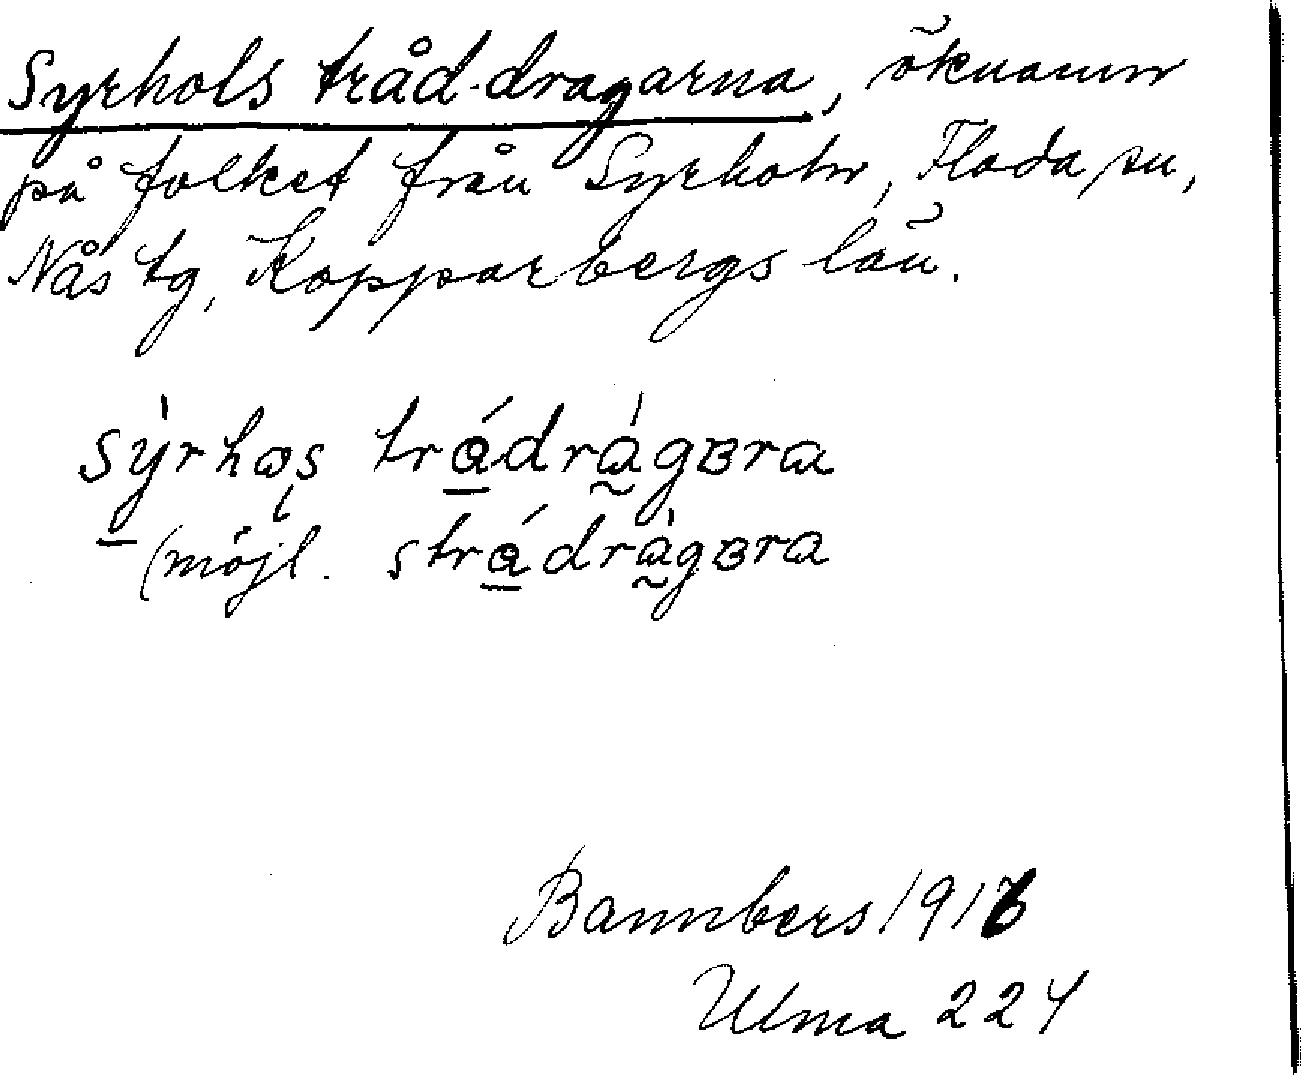 Syrhols tråd-dragarna, öknamn
på folket från Syrholn, Floda sn,
Nås tg, Kopparbergs län.
sýrhɷs trádràgɐra
(möjl. strádràgɐra
Bannbers 1916
Ulma 224